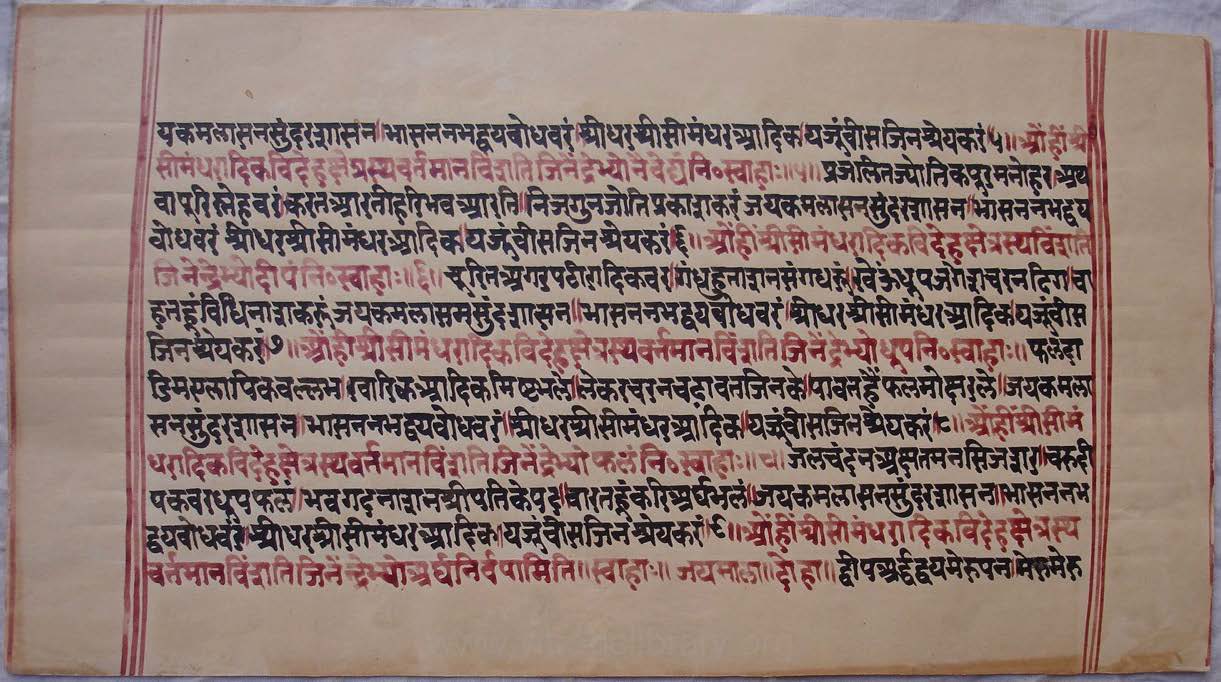 यकमलासनसुंदरशासन।भासननभद्वयवोधवरं।श्रीधरश्रीसीमंधरआदिक।यजूंवीसजिनश्रेयकरं।५॥ओंह्रींश्री
सीमंधरादिकविदेहक्षेत्रस्यवर्तमानविंशतिजिनेंद्रेभ्योनैवेद्यंनि॰स्वाहाः॥५॥प्रजलितज्योतिकपूरमनोहर।अथ
वापूरिस्नेहवरं।करतआरतीहरिभवआरति।निजगुनजोतिप्रकाशकरं।जयकमलासनसुंदरशासन।भासननभद्वय
वोधवरं।श्रीधरश्रीसीमंधरआदिक।यजूंवीसजिनश्रेयकरं।६॥ओंह्रींश्रीसीमंधरादिकविदेहक्षेत्रस्यविंशति
जिनेन्द्रेभ्योदीपंनि॰स्वाहाः॥६॥चूरितअगरपटीरादिकवर।गंधहुताशनसंगधरूं।खेऊंधूपजगेशचरनढिग।वा
हतहूंविधिनाशकरुं।जयकमलासनसुंदरशासन।भासननभद्वयवोधवरं।श्रीधरश्रीसीमंधरआदिक।यजूंवीस
जिनश्रेयकरं।७॥ओंह्रींश्रीसीमंधरादिकविदेहक्षेत्रस्यवर्तमानविंशतिजिनेंद्रेभ्योधूपंनि॰स्वाहाः॥ फलदा
डिम वल्लभ।खारिकआदिकमिष्टभले।लेकरचरनचढावनजिनके।पावतहैंफलमोक्षरले।जयकमला
सनसुंदरशासन।भासननभद्वयवोधवरं।श्रीधरश्रीसीमंधरआदिक।यजूंवीसजिनश्रेयकरं।८॥ओंह्रींश्रीसीमं
धरादिकविदेहक्षेत्रस्यवर्तमानविंशतिजिनेंद्रेभ्योफलंनि॰स्वाहाः॥८।जलचंदनअक्षतमनसिजशर।चरुदी
पकवरधूपफलं।भवगदनाशनश्रीपतिकेपद।वारतहूंकरिअर्घभलं।जयकमलासनसुंदरशासन।भासननभ
द्वयवोधवरं।श्रीधरश्रीसीमंधरआदिक।यजूंवीसजिनश्रेयकरं।९॥ओंह्रींश्रीसीमंधरादिकविदेहक्षेत्रस्य
वर्तमानविंशतिजिनेन्द्रेभ्योअर्घंनिर्वपामिति॥स्वाहाः॥ जयमाला॥दोहा॥द्वीपअर्द्धद्वयमेरुपन।मेरुमेरु